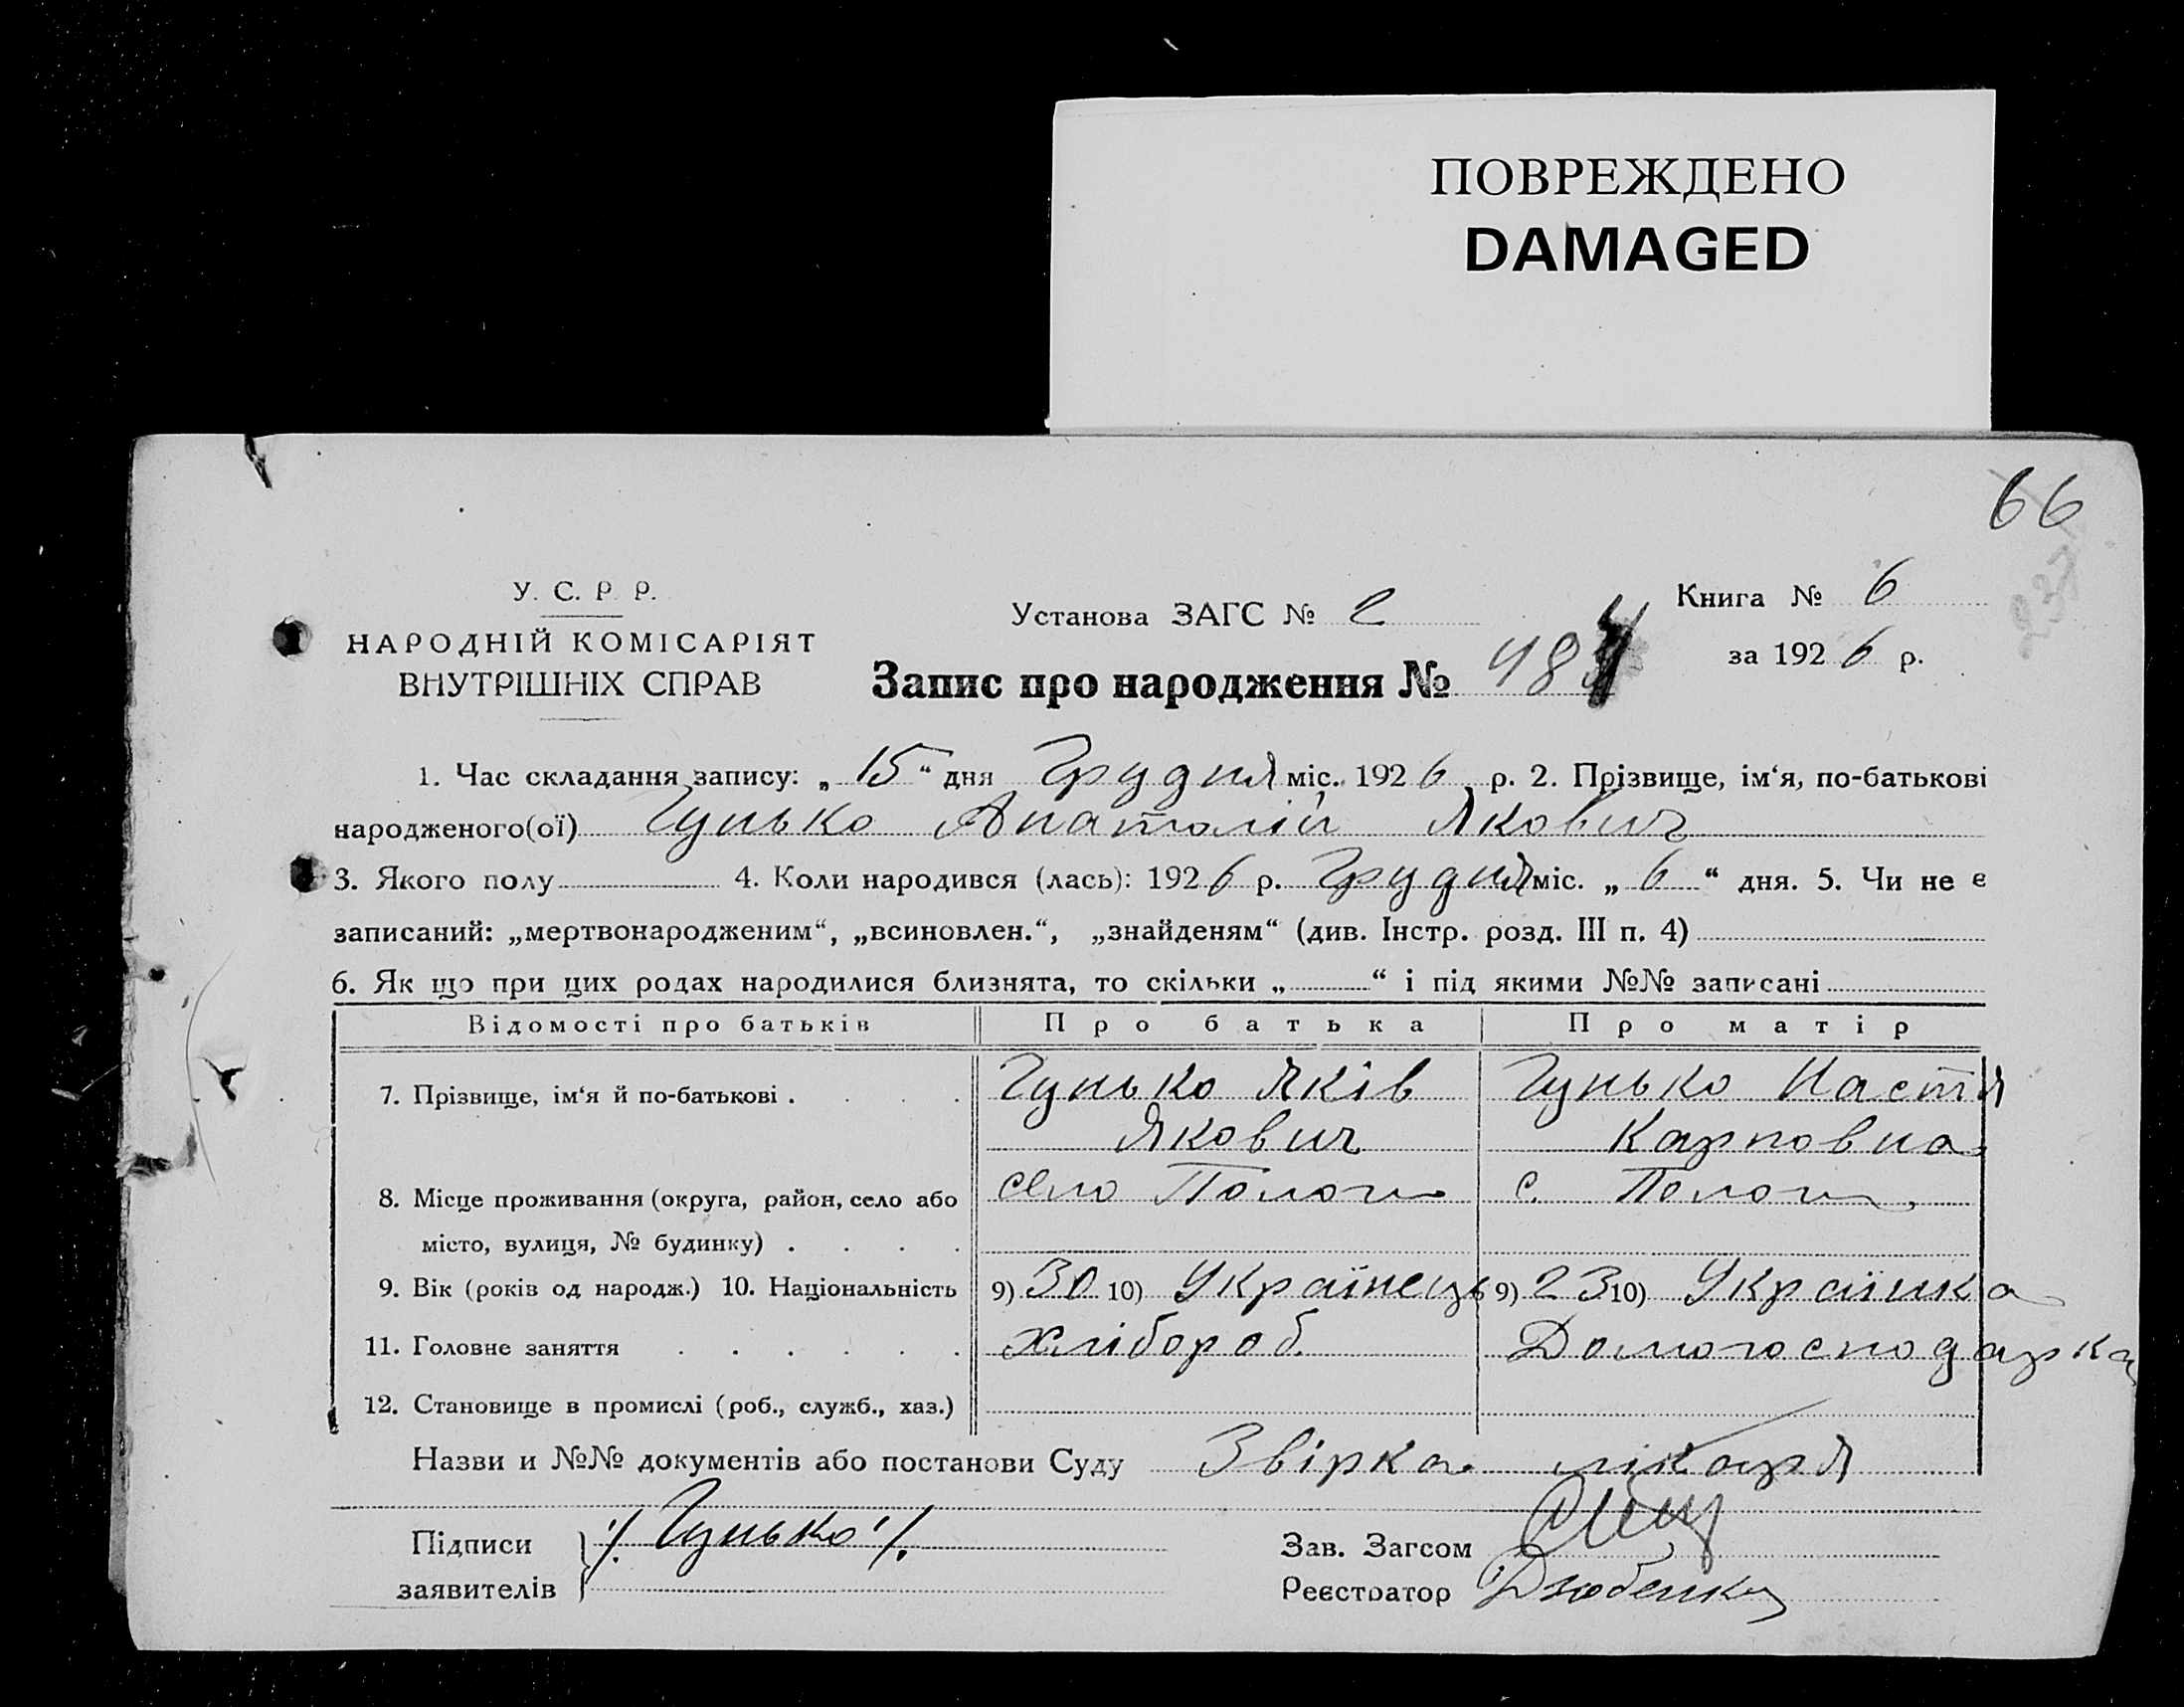 ПОВРЕЖДЕНО
DAMAGED
66
У. С. Р. Р.
НАРОДНІЙ КОМІСАРІЯТ
ВНУТРІШНІХ СПРАВ
Установа ЗАГС № 2
Книга № 6
за 1926 р.
Запис про народження № 484
1. Час складання запису: „15“ дня Грудня міс. 1926 р. 2. Прізвище, ім‘я, по-батькові
народженого(ої) Гунько Анатолій Якович
3. Якого полу 4. Коли народився (лась): 1926 р. Грудня міс. „6“ дня. 5. Чи не є
записаний: „мертвонародженим“, „всиновлен.“, „знайденям“ (див. Інстр. розд. III п. 4)
6. Як що при цих родах народилися близнята, то скільки „ “ і під якими №№ записані
Відомості про батьків Про батька Про матір
7. Прізвище, ім‘я й по-батькові . . . . Гунько Яків Гунько Настя
Якович Карповна
8. Місце проживання (округа, район, село або село Пологи с. Пологи
місто, вулиця, № будинку) . . . .
9. Вік (років од народж.) 10. Національність 9) 30 10) Українець 9) 23 10) Українка
11. Головне заняття . . . . . . Хлібороб. Домогосподарка
12. Становище в промислі (роб., служб., хаз.)
Назви и №№ документів або постанови Суду Звірка лікаря
Підписи /. Гунько /.
заявителів
Зав. Загсом
Реєстратор Дзюбенко